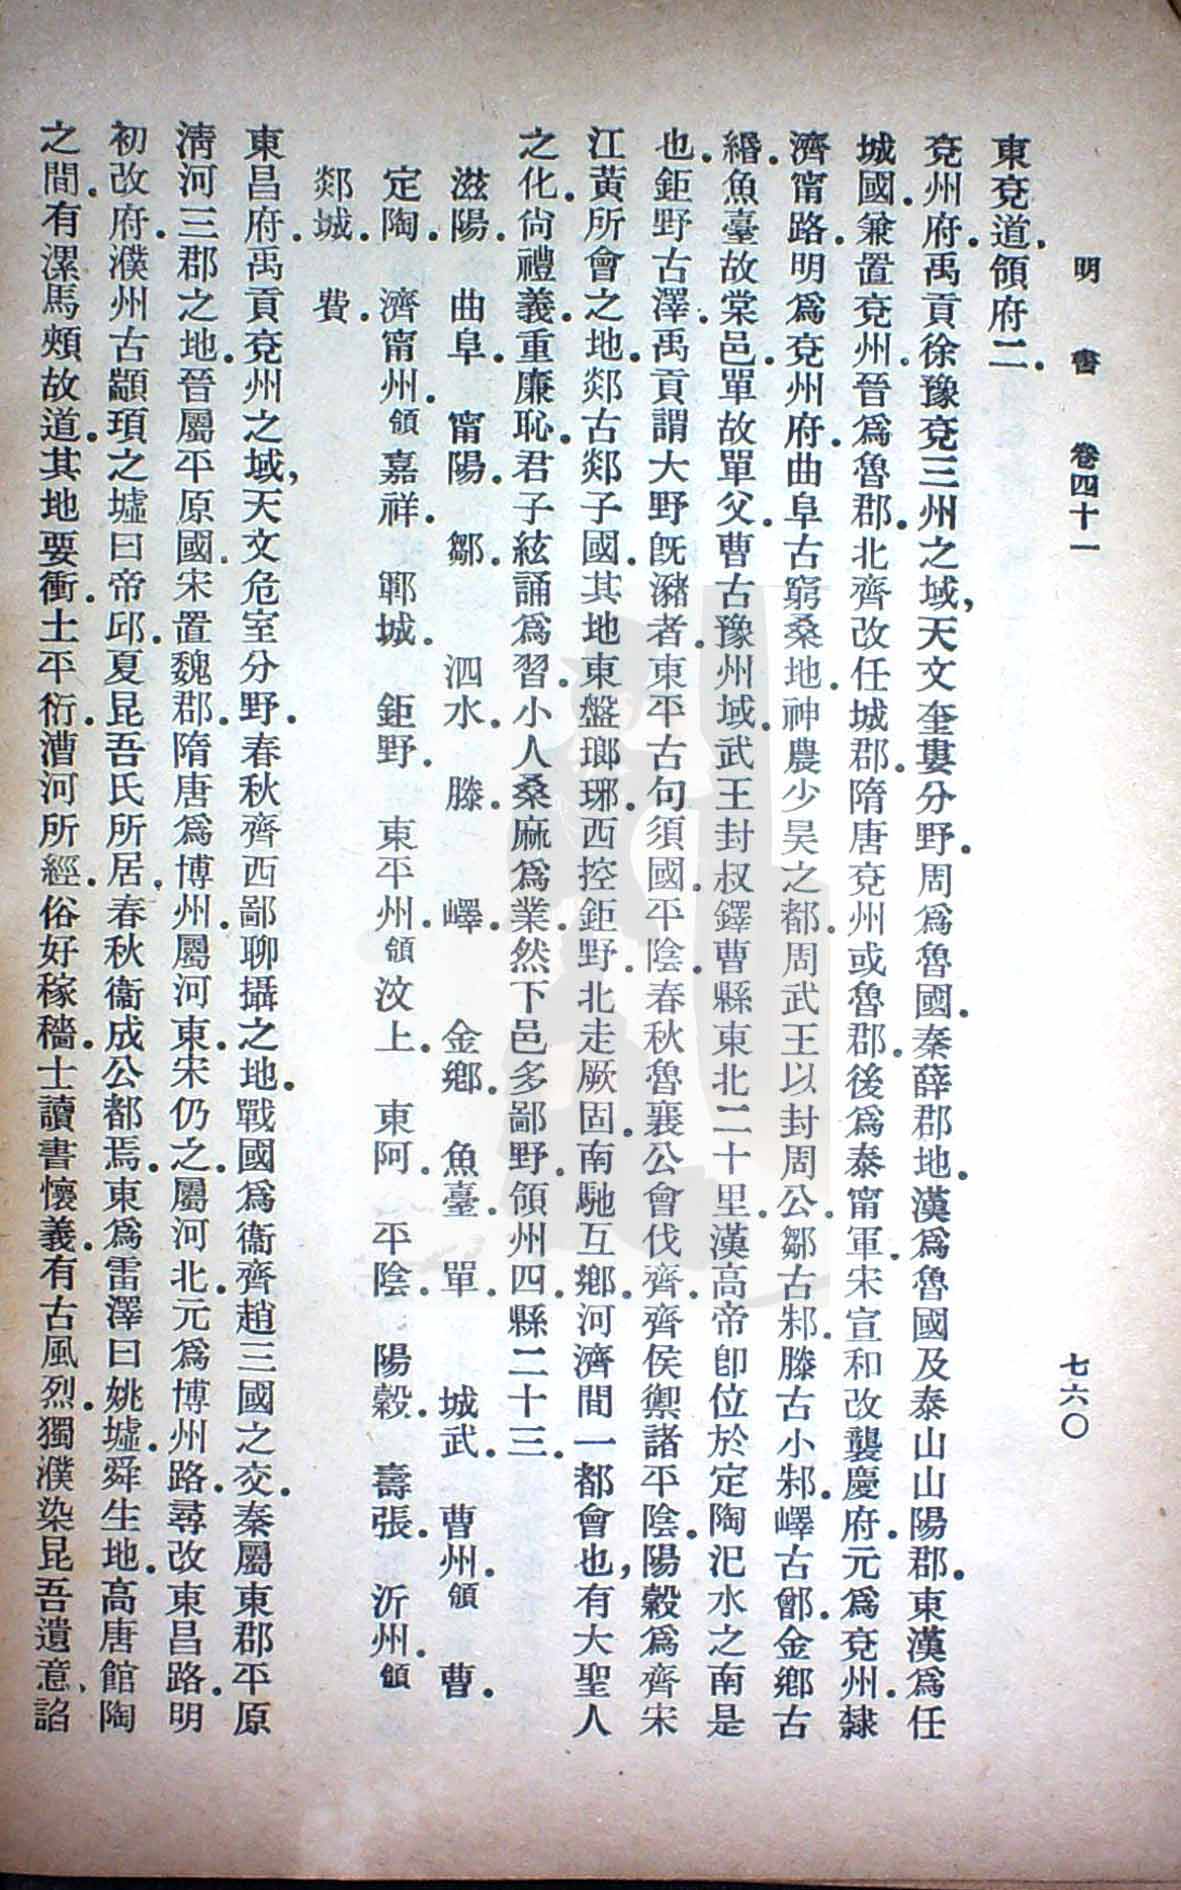 明書 卷四十一 七六〇
東兗道.領府二.
兗州府.禹貢徐豫兗三州之域,天文奎婁分野.周爲魯國.秦薛郡地.漢爲魯國及泰山山陽郡.東漢爲任
城國.兼置兗州.晉爲魯郡.北齊改任城郡.隋唐兗州或魯郡.後爲泰甯軍.宋宣和改襲慶府.元爲兗州.隸
濟甯路.明爲兗州府.曲阜古窮桑地.神農少昊之都.周武王以封周公.鄒古邾.滕古小邾.嶧古鄫.金鄉古
緡.魚臺故棠邑.單故單父.曹古豫州域.武王封叔鐸曹縣東北二十里.漢高帝卽位於定陶汜水之南是
也.鉅野古澤.禹貢謂大野旣瀦者.東平古句須國.平陰.春秋魯襄公會伐齊.齊侯禦諸平陰.陽穀爲齊宋
江黃所會之地.郯古郯子國.其地東盤瑯琊.西控鉅野.北走厥固.南馳互鄉.河濟間一都會也,有大聖人
之化.尙禮義.重廉恥.君子絃誦爲習.小人桑麻爲業.然下邑多鄙野.領州四.縣二十三.
滋陽. 曲阜. 甯陽. 鄒. 泗水. 滕. 嶧. 金鄉. 魚臺. 單. 城武. 曹州.領 曹.
定陶. 濟甯州.領 嘉祥. 鄆城. 鉅野. 東平州.領 汶上. 東阿. 平陰. 陽穀. 壽張. 沂州.領
郯城. 費.
東昌府.禹貢兗州之域,天文危室分野.春秋齊西鄙聊攝之地.戰國爲衞齊趙三國之交.秦屬東郡平原
清河三郡之地.晉屬平原國.宋置魏郡.隋唐爲博州.屬河東.宋仍之.屬河北.元爲博州路.尋改東昌路.明
初改府.濮州古顓頊之墟曰帝邱.夏昆吾氏所居.春秋衞成公都焉.東爲雷澤曰姚墟.舜生地.高唐館陶
之間.有漯馬頰故道.其地要衝.土平衍.漕河所經.俗好稼穡.士讀書懷義.有古風烈.獨濮染昆吾遺意.諂